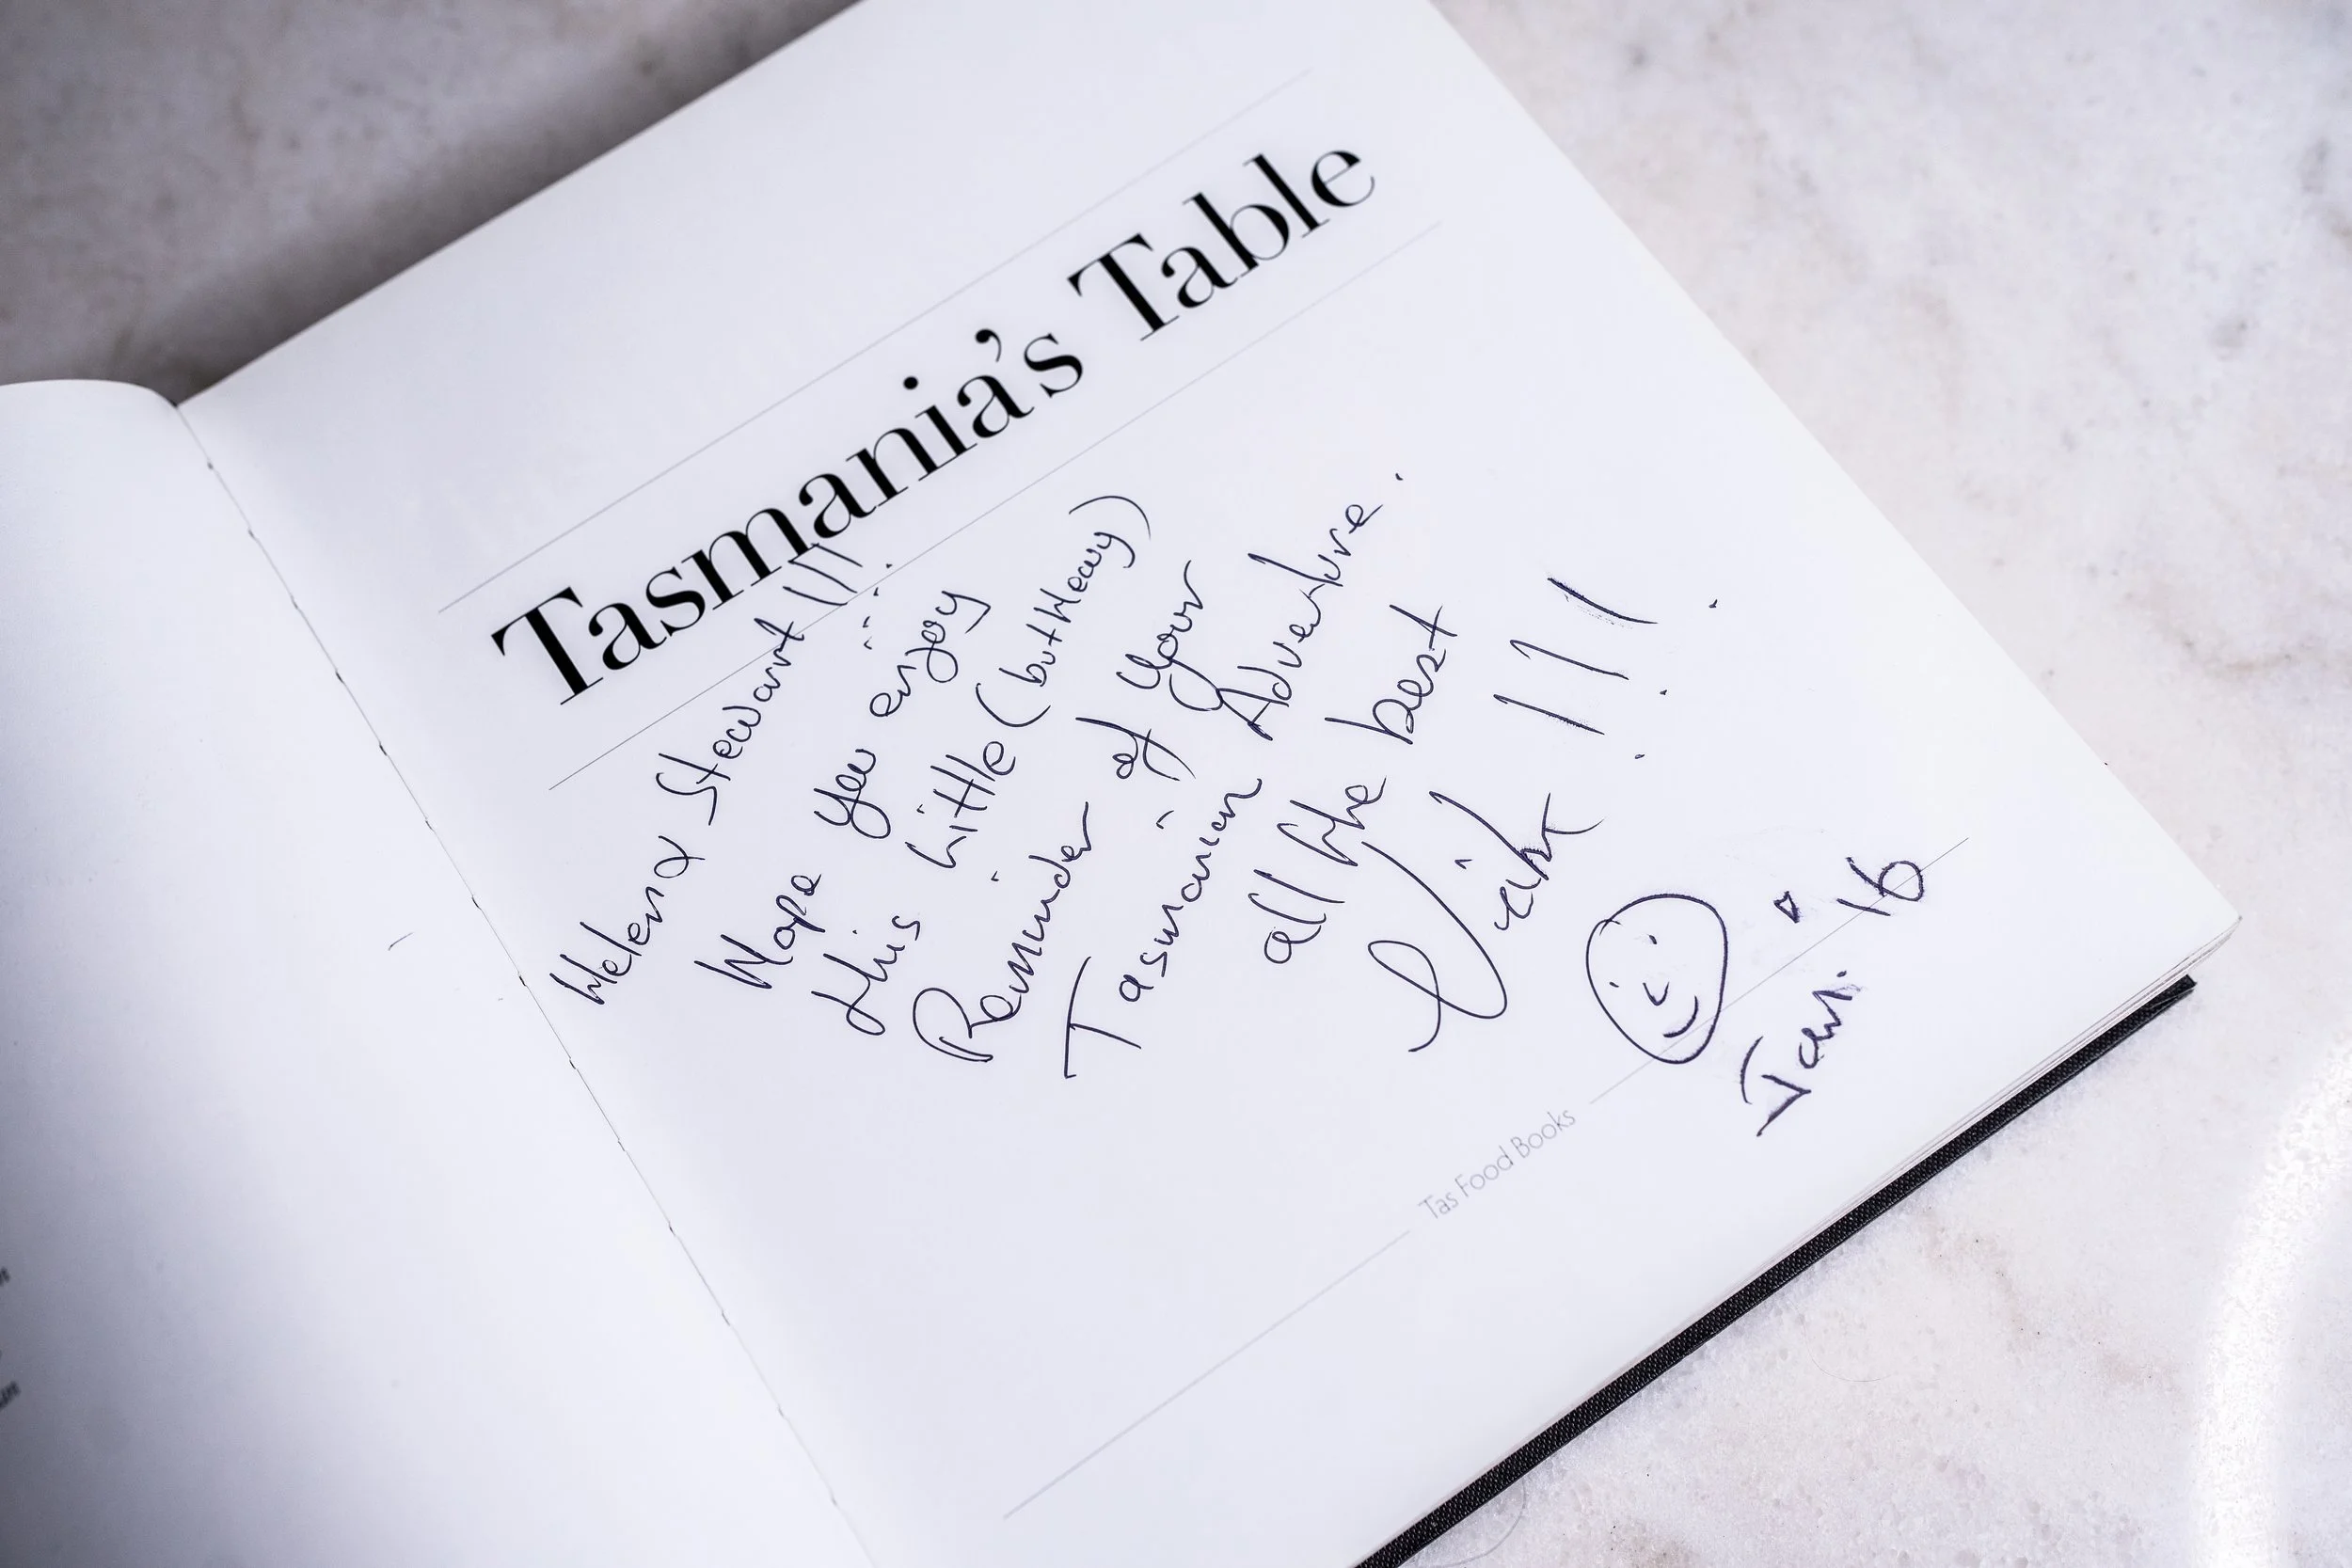 Tasmania's Table
Helen & Stewart !!!
Hope you enjoy
this Little (but Heavy)
Reminder of your
Tasmanian Adventure.
all the best
!!!
Jan. 16
Tas Food Books